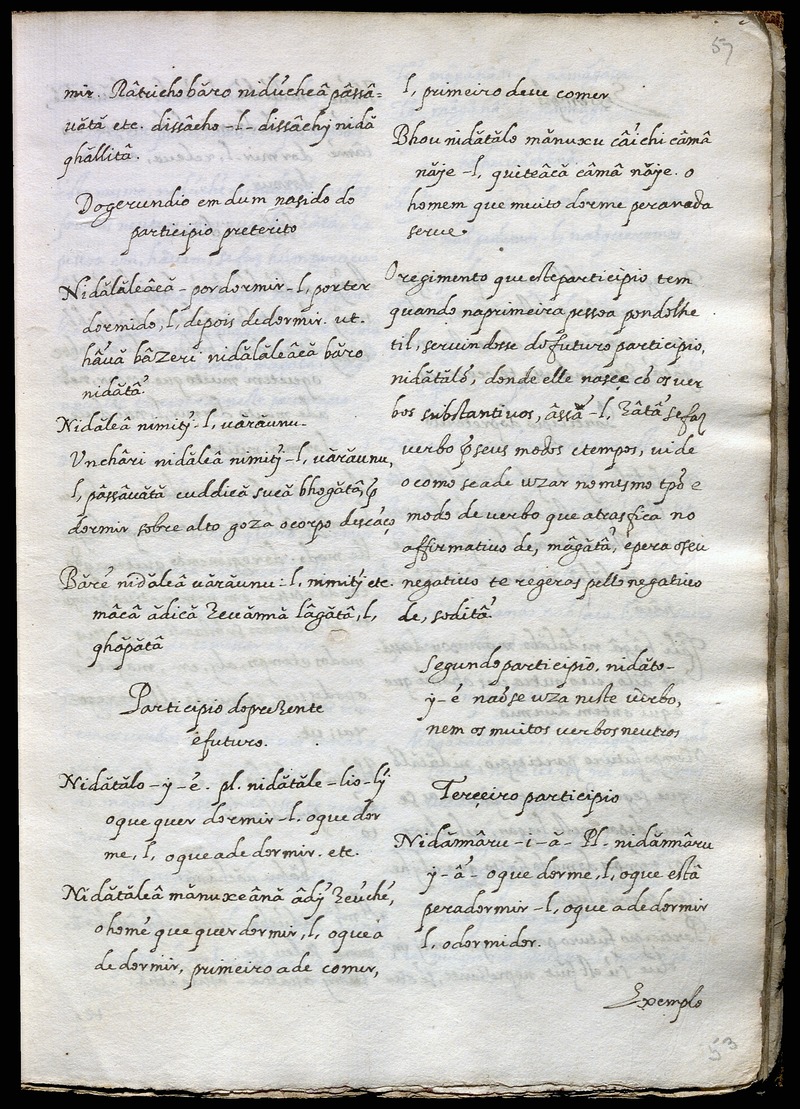 57
mir. Râtricho băro nidúcheâ pâssâ=
vătă etc. dissâcho -l- dissâchý nidă
ghăllitâ.
Dogerundio em dum nasido do
participio preterito
Nidălăleâcă - por dormir -l, por ter
dormido, l, depois de dormir. ut.
hâuă bâzeri nidălăleâcă băro
nidătâ.
Nidăleâ nimitý -l, vărăunu.
Vnchâri nidăleâ nimitý -l, vărăunu,
l, pâssâvătă cuddicâ sucă bhogătâ, p̃
dormir sobre alto goza o corpo descâço
Băré nidăleâ vărăunu: l, nimitý etc.
mâcâ ădicâ zeuănnâ lâgătâ, l,
ghăpătâ
Participio do prezente
é futuro.
Nidătălo - y - é. pl. nidătăle - lio - lý
o que quer dormir -l. o que dor
me, l, o que a de dormir. etc.
Nidătăleâ mănuxeână âdý zeuché,
o homé que quer dormir, l, o que â
de dormir, primeiro a de comer,
l, primeiro deve comer
Bhou nidătălo mănuxu câi chi câmâ
năje -l, quiteâcă câmâ năje. o
homem que muito dorme pera nada
serue.
O regimento que este participio tem
quando na primeira pessoa pondolhe
til, seruindosse do futuro participio,
nidătălõ, donde elle nasce cõ os ver
bos substantiuos, âssâ -l, zâtâ se faz
verbo p̃ seus modos e tempos, vide
o como se ade uzar no mesmo tpõ e
modo de verbo que atras fica no
affirmatiuo de, mâgâtâ, e pera o seu
negatiuo te regeras pello negatiuo
de, soditâ.
Segundo participio, nidăto -
y - é naõ se uza neste verbo,
nem os muitos verbos neutros
Terçeiro participio
Nidănnâru - i - ă - Pl. nidănnâru
y - â - o que dorme, l, o que está
pera dormir -l, o que a de dormir
l, o dormidor.
Exemplo
53